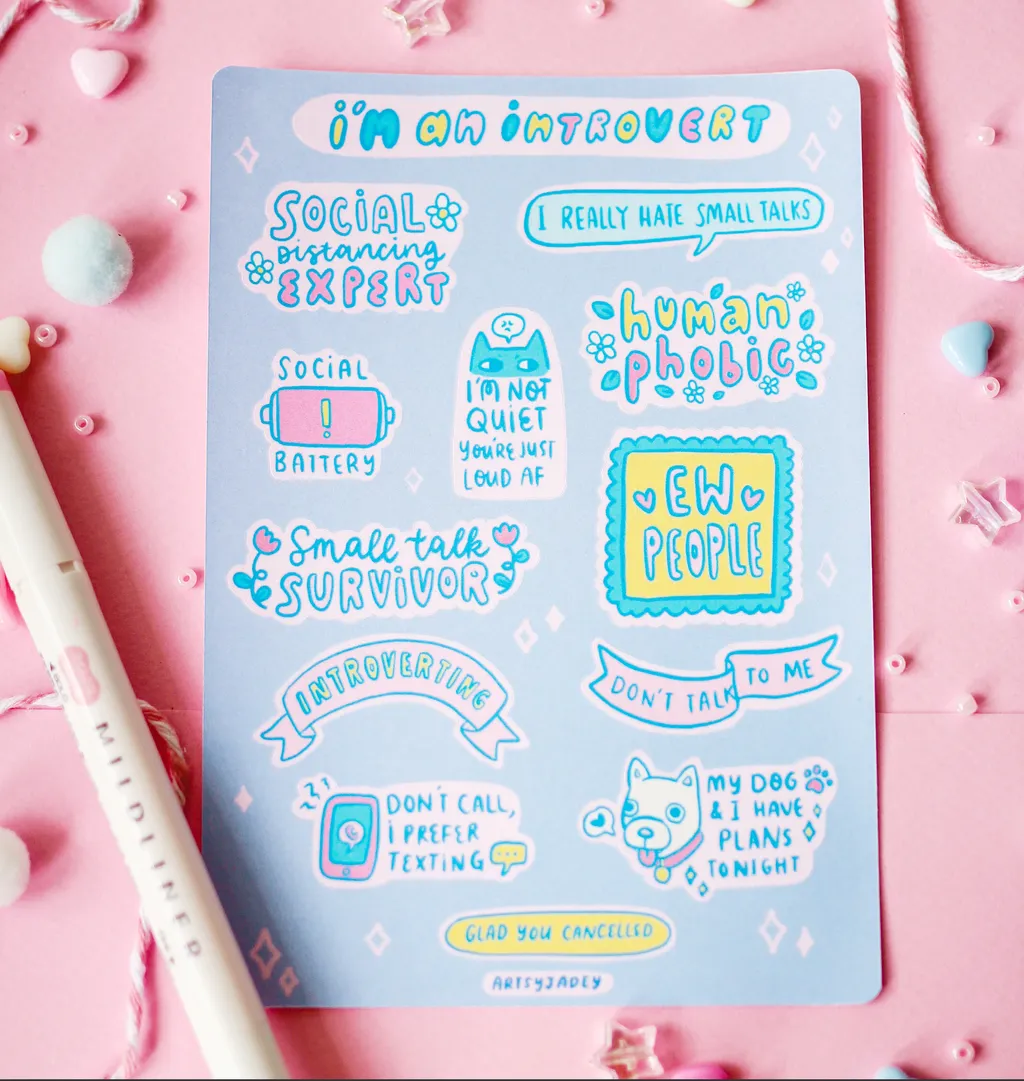 i'm an introvert
SOCIAL
Distancing
EXPERT
I REALLY HATE SMALL TALKS
human
phobic
SOCIAL
!
BATTERY
I'M NOT
QUIET
YOU'RE JUST
LOUD AF
EW
PEOPLE
Small talk
SURVIVOR
INTROVERTING
DON'T TALK TO ME
DON'T CALL,
I PREFER
TEXTING
MY DOG
& I HAVE
PLANS
TONIGHT
GLAD YOU CANCELLED
ARTSYJADEY
MIILDLINER